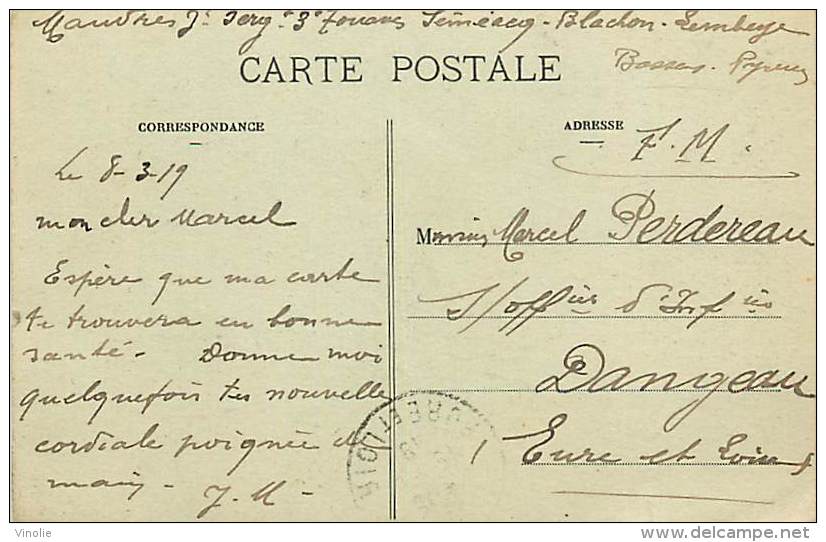 Maudres J. Serg. 3e Zouaves Séméacq-Blachon-Lembeye
Basses-Pyrén
CARTE POSTALE
CORRESPONDANCE
ADRESSE
F. M.
Le 8-3-19
mon cher Marcel
Monsieur Marcel Perdereau
Espère que ma carte
te trouvera en bonne
S/officier d'Infie
santé. Donne moi
Dangeau
quelquefois tes nouvelle
cordiale poignée de
Eure et Loir
main,
J. M-
EURE ET LOIR
Vinolie
www.delcampe.net